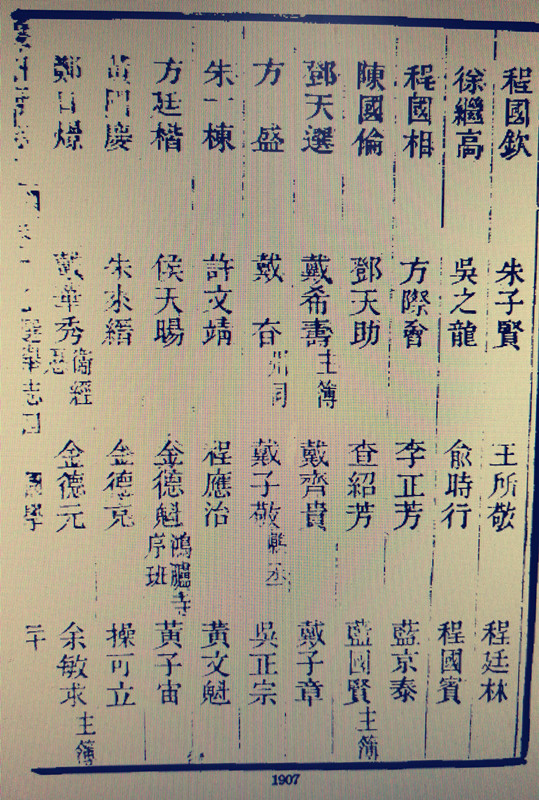 程國欽 朱子賢 王所敬 程廷林
徐繼高 吳之龍 俞時行 程國賓
程國相 方際會 李正芳 藍京泰
陳國倫 鄧天助 查紹芳 藍國賢主簿
鄧天選 戴希壽主簿 戴齊貴 戴子章
方盛 戴春州同 戴子敬縣丞 吳正宗
朱一棟 許文靖 程應治 黃文魁
方廷楷 侯天暘 金德魁鴻臚寺序班 黃子宙
黃門慶 朱來縉 金德亮 操可立
鄭日 戴華秀衛經 金德元 余敏求主簿
選舉志 國學 二十
1907